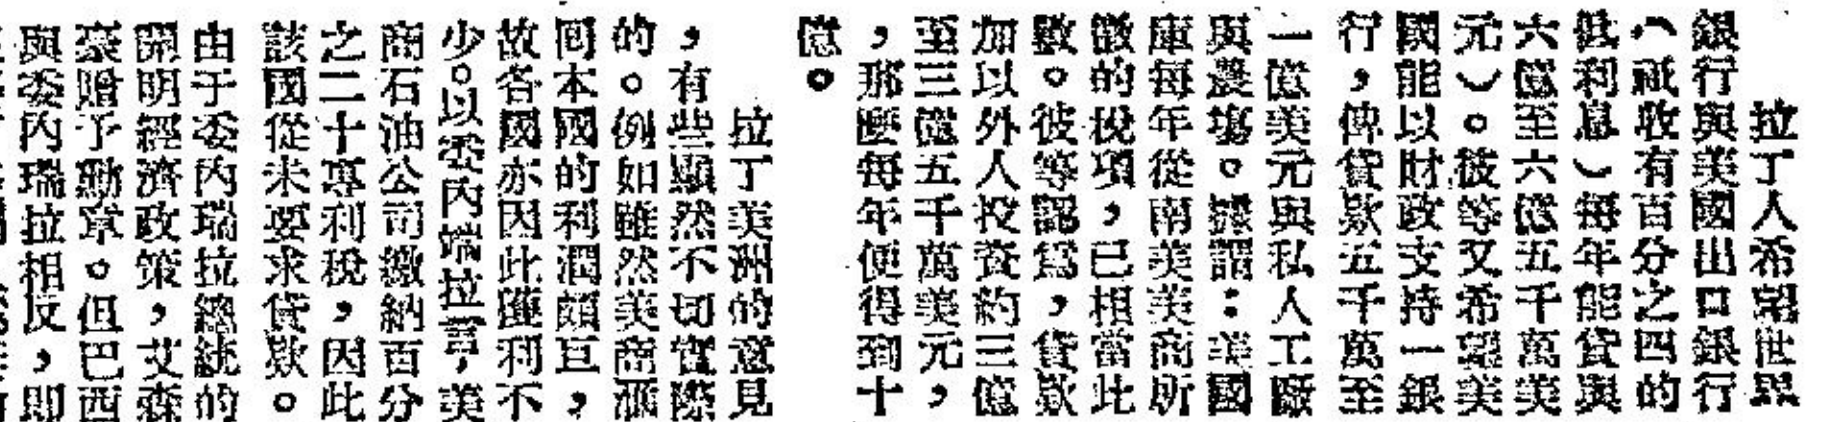 拉丁人希望世界
銀行與美國出口銀行
（祇收有百分之四的
低利息）每年能貸與
六億至六億五千萬美
元）。彼等又希望美
國能以財政支持一銀
行，俾貸款五千萬至
一億美元與私人工廠
與農塲。據謂：美國
庫每年從南美美商所
徵的稅項，已相當此
數。彼等認爲，貸款
加以外人投資約三億
至三億五千萬美元，
，那麼每年便得到十
億。
拉丁美洲的意見
，有些顯然不切實際
的。例如雖然美商滙
囘本國的利潤頗巨，
故各國亦因此獲利不
少。以委內瑞拉言，美
商石油公司繳納百分
之二十專利稅，因此
該國從未要求貸款。
由于委內瑞拉總統的
開明經濟政策，艾森
豪贈予勳章。但巴西
與委內瑞拉相反，即